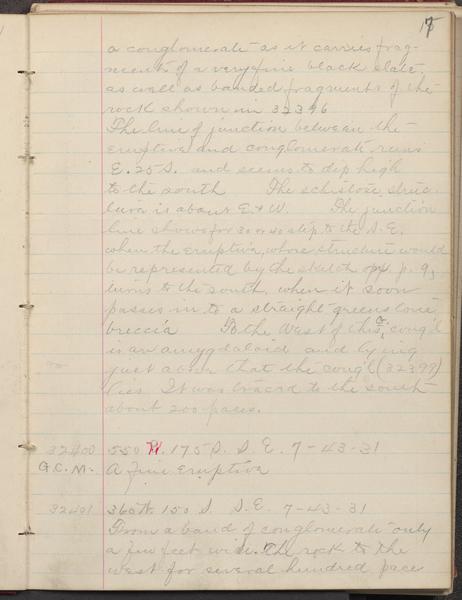 17
a conglomerate as it carries frag-
ments of a very fine black slate,
as well as banded fragments of the
rock shown in 32396
The line of junction between the
eruptive and conglomerate runs
E. 25 S. and seems to dip high
to the south The schistose struc-
ture is about E & W. The junction
line shows for 30 or 40 step to the S.E.
when the eruptive, whose structure would
be represented by the sketch opp. p. 9,
turns to the south, when it soon
passes in to a straight greenstone
breccia To the West of this congl
is an amygdaloid and lying
just above that the cong'l (32399)
lies It was traced to the south
about 200 paces.
32400 550 N. 175 S. S.E. 7-43-31
G.C.M. A fine eruptive
32401 360 W. 150 S. S.E. 7-43-31
From a band of conglomerate only
a few feet wide. The rock to the
west for several hundred pace